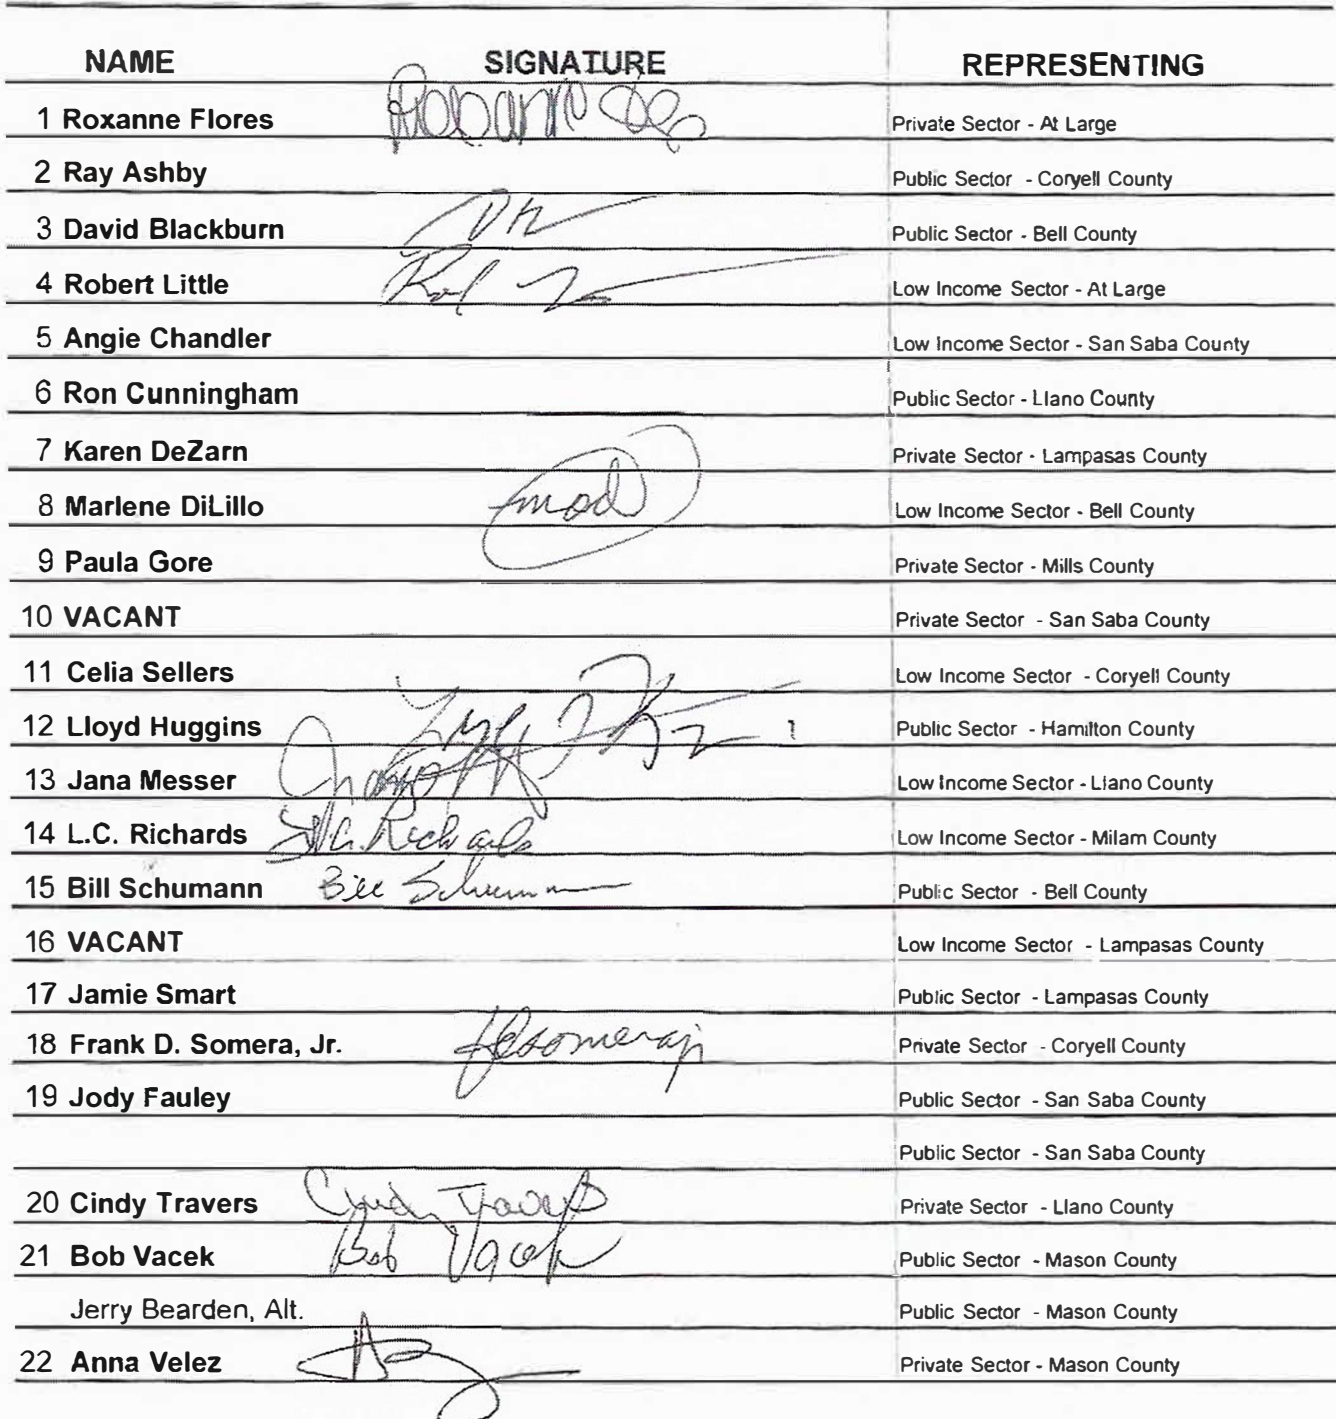 NAME SIGNATURE REPRESENTING
1 Roxanne Flores Private Sector - At Large
2 Ray Ashby Public Sector - Coryell County
3 David Blackburn Public Sector - Bell County
4 Robert Little Low Income Sector - At Large
5 Angie Chandler Low Income Sector - San Saba County
6 Ron Cunningham Public Sector - Llano County
7 Karen DeZarn Private Sector - Lampasas County
8 Marlene DiLillo mod Low Income Sector - Bell County
9 Paula Gore Private Sector - Mills County
10 VACANT Private Sector - San Saba County
11 Celia Sellers Low Income Sector - Coryell County
12 Lloyd Huggins Public Sector - Hamilton County
13 Jana Messer Low Income Sector - Llano County
14 L.C. Richards L.C. Richards Low Income Sector - Milam County
15 Bill Schumann Bill Schumann Public Sector - Bell County
16 VACANT Low Income Sector - Lampasas County
17 Jamie Smart Public Sector - Lampasas County
18 Frank D. Somera, Jr. fdsomerajr Private Sector - Coryell County
19 Jody Fauley Public Sector - San Saba County
Public Sector - San Saba County
20 Cindy Travers Cindy Travers Private Sector - Llano County
21 Bob Vacek Bob Vacek Public Sector - Mason County
Jerry Bearden, Alt. Public Sector - Mason County
22 Anna Velez Private Sector - Mason County